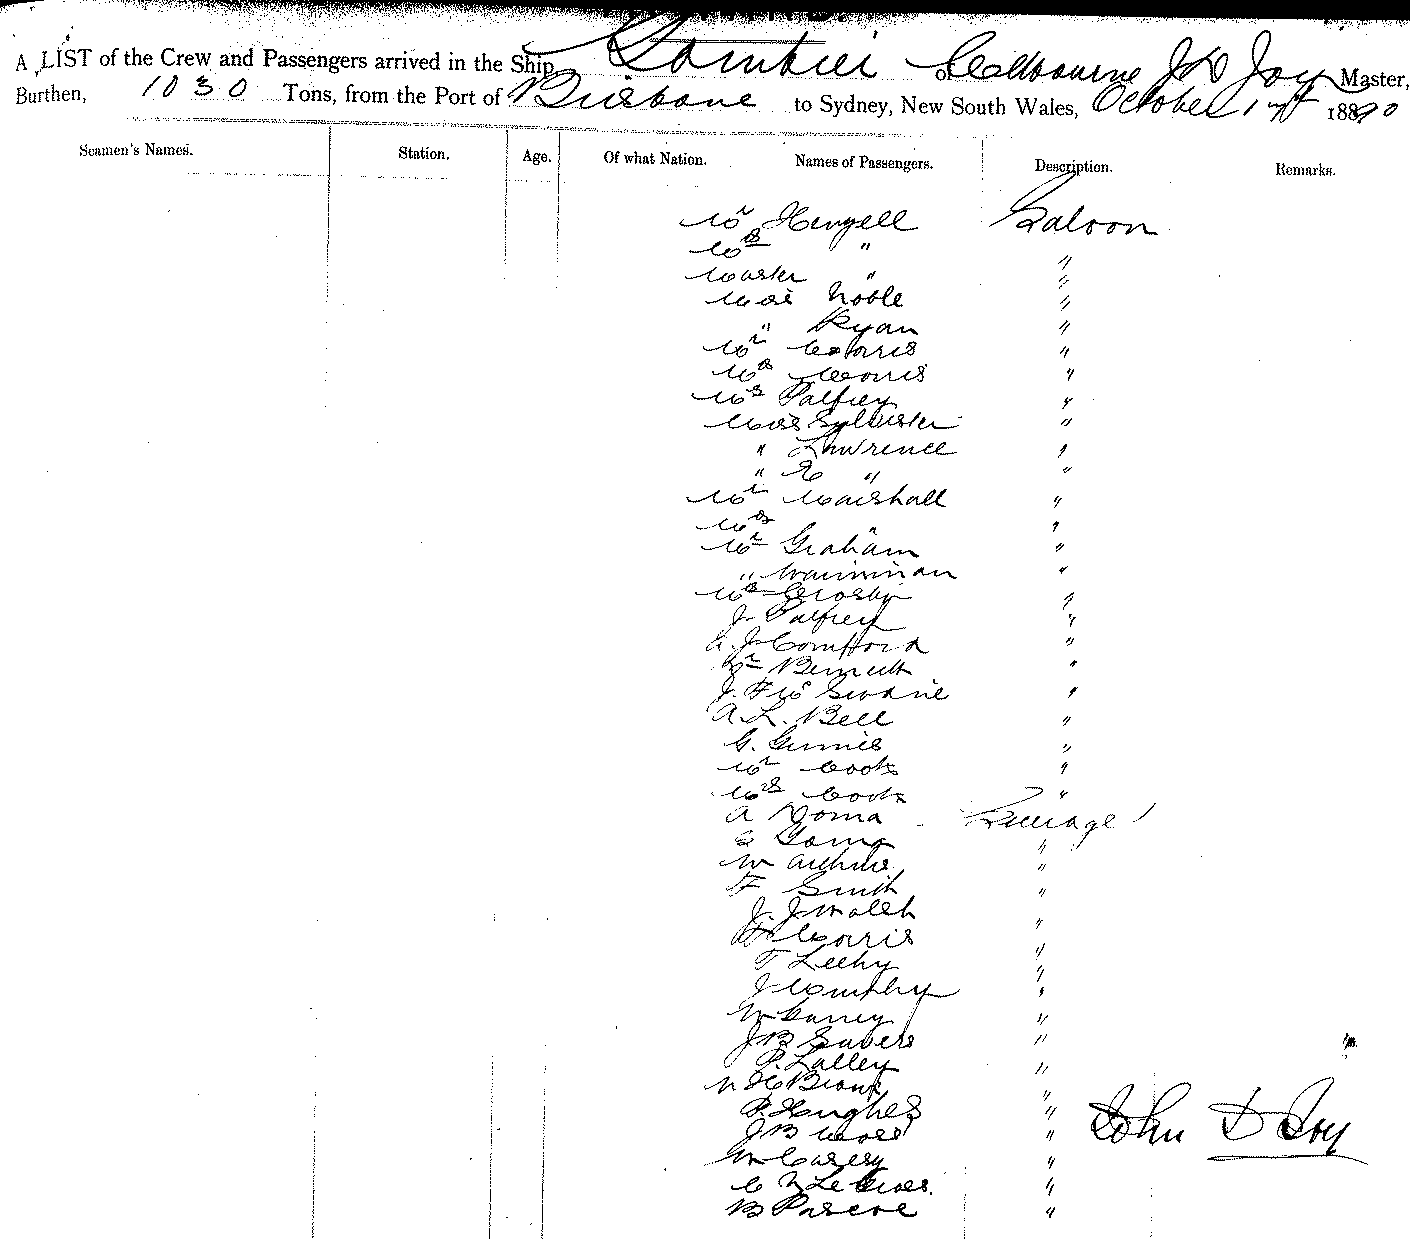 A LIST of the Crew and Passengers arrived in the Ship Gambier of Melbourne J D Joy Master,
Burthen, 1030 Tons, from the Port of Brisbane to Sydney, New South Wales, October 17th 1890
Seamen's Names. Station. Age. Of what Nation. Names of Passengers. Description. Remarks.
Mr Hengell Saloon
Mrs " "
Master " "
Miss Noble "
" Ryan "
Mr Morris "
Mrs Morris "
Mrs Palfrey "
Miss Sylvester "
" Lawrence "
" E " "
Mr Marshall "
Mrs " "
Mr Graham "
" "
Mrs Crosby "
J. Palfrey "
A. J. "
Mr Bennett "
J. F. M "
A. L. Bell "
G. "
Mr Cook "
Mrs Cook "
A Steerage
"
W "
F Smith "
J. J Walsh "
Morris "
T Leehy "
J Murphy "
W Carney "
J B "
P. Lalley "
W H Brown "
P. Hughes "
J B Moss "
W Casey "
C "
B Pascoe "
John D Joy